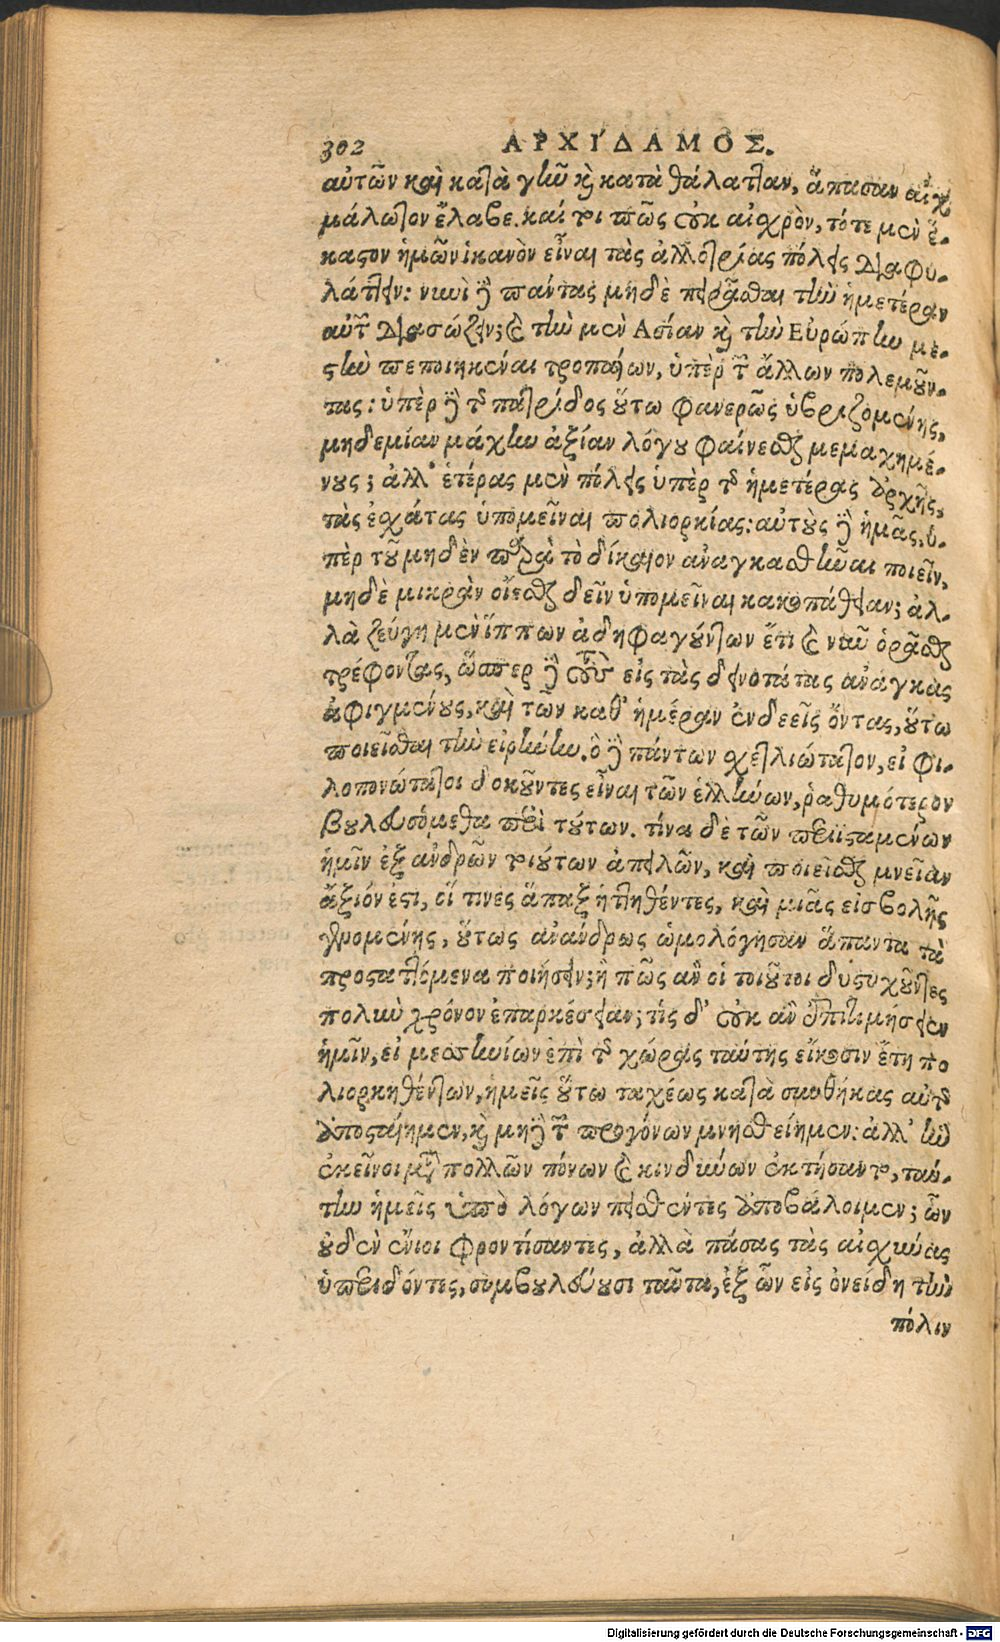 302 ΑΡΧΙΔΑΜΟΣ.
αὐτῶν καὶ κατὰ γῆν καὶ κατὰ θάλατταν, ἅπασαν αἰχ
μάλωτον ἔλαβε. καί τοι πῶς οὐκ αἰσχρὸν, τότε μὲν ἕ-
καστον ἡμῶν ἱκανὸν εἶναι τὰς ἀλλοτρίας πόλεις διαφυ-
λάττειν: νυνὶ δὲ πάντας μηδὲ πειρᾶσθαι τὴν ἡμετέραν
αὐτῶν διασώζειν; καὶ τὴν μὲν Ασίαν καὶ τὴν Εὐρώπην με-
στὴν πεποιηκέναι τροπαίων, ὑπὲρ τῶν ἄλλων πολεμοῦν-
τας: ὑπὲρ δὲ τῆς πατρίδος οὕτω φανερῶς ὑβριζομένης,
μηδεμίαν μάχην ἀξίαν λόγου φαίνεσθαι μεμαχημέ-
νους; ἀλλ' ἑτέρας μὲν πόλεις ὑπὲρ τῆς ἡμετέρας ἀρχῆς,
τὰς ἐσχάτας ὑπομεῖναι πολιορκίας: αὐτοὺς δὲ ἡμᾶς, ὑ-
πὲρ τοῦ μηδὲν παρὰ τὸ δίκαιον ἀναγκασθῆναι ποιεῖν,
μηδὲ μικρὰν οἴεσθαι δεῖν ὑπομεῖναι κακοπάθειαν; ἀλ-
λὰ ζεύγη μὲν ἵππων ἀδηφαγούντων ἔτι καὶ νῦν ὁρᾶσθαι
τρέφοντας, ὥσπερ δὲ τοὺς εἰς τὰς δεινοτάτας ἀνάγκας
ἀφιγμένους, καὶ τῶν καθ' ἡμέραν ἐνδεεῖς ὄντας, οὕτω
ποιεῖσθαι τὴν εἰρήνην. ὃ δὲ πάντων σχετλιώτατον, εἰ φι-
λοπονώτατοι δοκοῦντες εἶναι τῶν ἑλλήνων, ῥαθυμότερον
βουλευσόμεθα περὶ τούτων. τίνα δὲ τῶν περιισταμένων
ἡμῖν ἐξ ἀνδρῶν τοιούτων ἀπειλῶν, καὶ ποιεῖσθαι μνείαν
ἄξιόν ἐστι, οἵ τινες ἅπαξ ἡττηθέντες, καὶ μιᾶς εἰσβολῆς
γενομένης, οὕτως ἀνάνδρως ὡμολόγησαν ἅπαντα τὰ
προσταττόμενα ποιήσειν; ἢ πῶς ἂν οἱ τοιοῦτοι δυστυχοῦντες
πολὺν χρόνον ἐπαρκέσειαν; τίς δ' οὐκ ἂν ἐπιτιμήσειεν
ἡμῖν, εἰ μεσσηνίων ἐπὶ τῆς χώρας ταύτης εἴκοσιν ἔτη πο
λιορκηθέντων, ἡμεῖς οὕτω ταχέως κατὰ συνθήκας αὐτῆς
ἀποσταίημεν, καὶ μηδὲ τῶν προγόνων μνησθείημεν: ἀλλ' ἣν
ἐκεῖνοι μετὰ πολλῶν πόνων καὶ κινδύνων ἐκτήσαντο, ταύ-
την ἡμεῖς ὑπὸ λόγων πεισθέντες ἀποβάλοιμεν; ὧν
οὐδὲν ἔνιοι φροντίσαντες, ἀλλὰ πάσας τὰς αἰσχύνας
ὑπεριδόντες, συμβουλεύουσι ταῦτα, ἐξ ὧν εἰς ὀνείδη τὴν
πόλιν
Digitalisierung gefördert durch die Deutsche Forschungsgemeinschaft - DFG